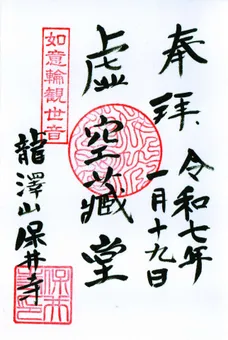 奉拝
令和七年
一月十九日
虚空蔵堂
如意輪観世音
龍澤山保井寺